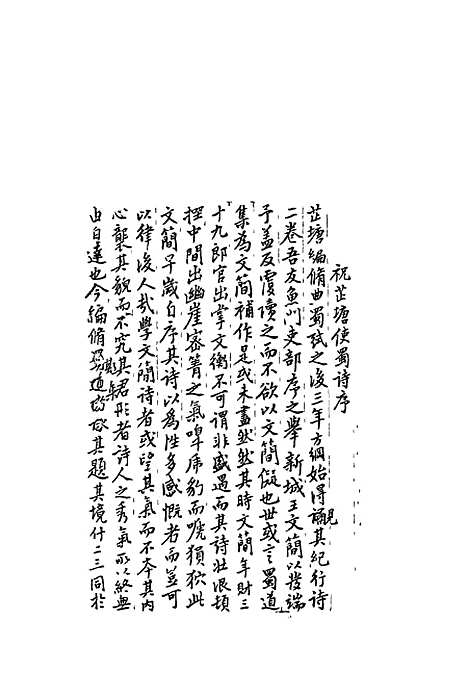 祝芷塘使蜀詩序
芷塘編脩典蜀試之後三年方綱始得誦見其紀行詩
二卷吾友魚門吏部序之舉新城王文簡以發端
予蓋反覆讀之而不欲以文簡儗也世或言蜀道
集為文簡補作是或未盡然然其時文簡年財三
十九郎官出掌文衡不可謂非盛遇而其詩壯浪頓
挫中間出幽崖密箐之氣嘷虎豹而嘯猿狖此
文簡早歲自序其詩以為性多感慨者而豈可
以律後人哉學文簡詩者或望其氣而不本其內
心襲其貌而不究其珺形者詩人之秀氣所以終無
由自達也今編脩蜀道集皆其題其境什二三同於